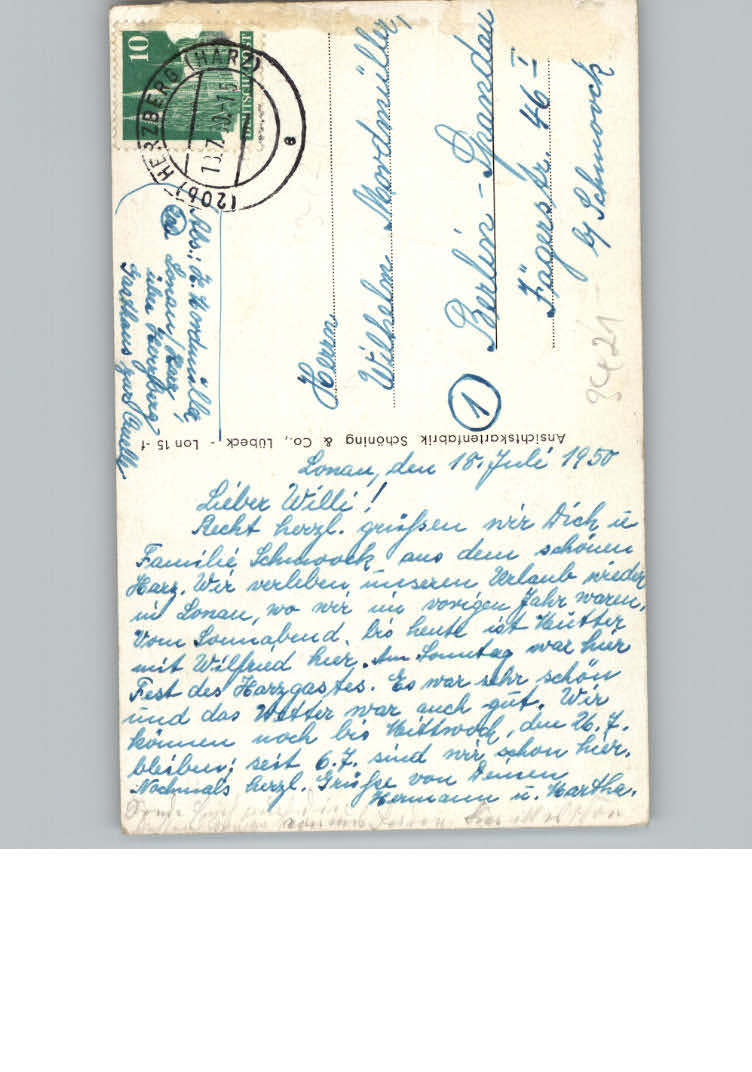 Lonau, den 18. Juli 1950
Lieber Willi!
Recht herzl. grüßen wir Dich u
Familie Schmoock aus dem schönen
Harz. Wir verleben unseren Urlaub wieder
in Lonau, wo wir im vorigen Jahr waren.
Vom Sonnabend. bis heute ist Mutter
mit Wilfried hier. Am Sonntag war hier
Fest des Harzgastes. Es war sehr schön
und das Wetter war auch gut. Wir
können noch bis Mittwoch, den 26.7.
bleiben; seit 6.7. sind wir schon hier.
Nochmals herzl. Grüße von Deinen
Hermann u. Martha.
Herrn
Wilhelm Mordmüller,
① Berlin-Spandau
Jägerstr. 46 I
b/ Schmoock
Abs.: H. Mordmüller,
Lonau/Harz
über Herzberg
Gasthaus
Ansichtskartenfabrik Schöning & Co., Lübeck - Lon 15 -f
10
DEUTSCHE POST
(20b) HERZBERG (HARZ)
a